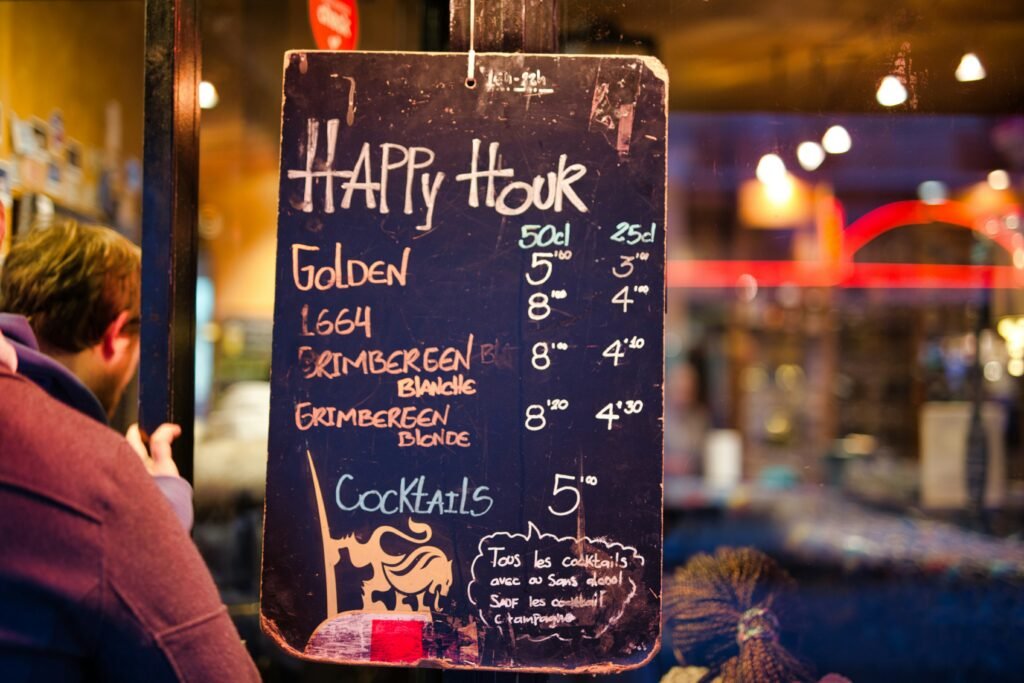 16h-22h
HAPPy HOUR
50cl 25cl
GOLDEN 5'00 3'00
1664 8'00 4'00
GRIMBERGEEN 8'00 4'10
BLANCHE
GRIMBERGEEN 8'20 4'30
BLONDE
COCKtAILS 5'00
Tous les cocktails
avec ou Sans alcool
SAUF les cocktail
champagne